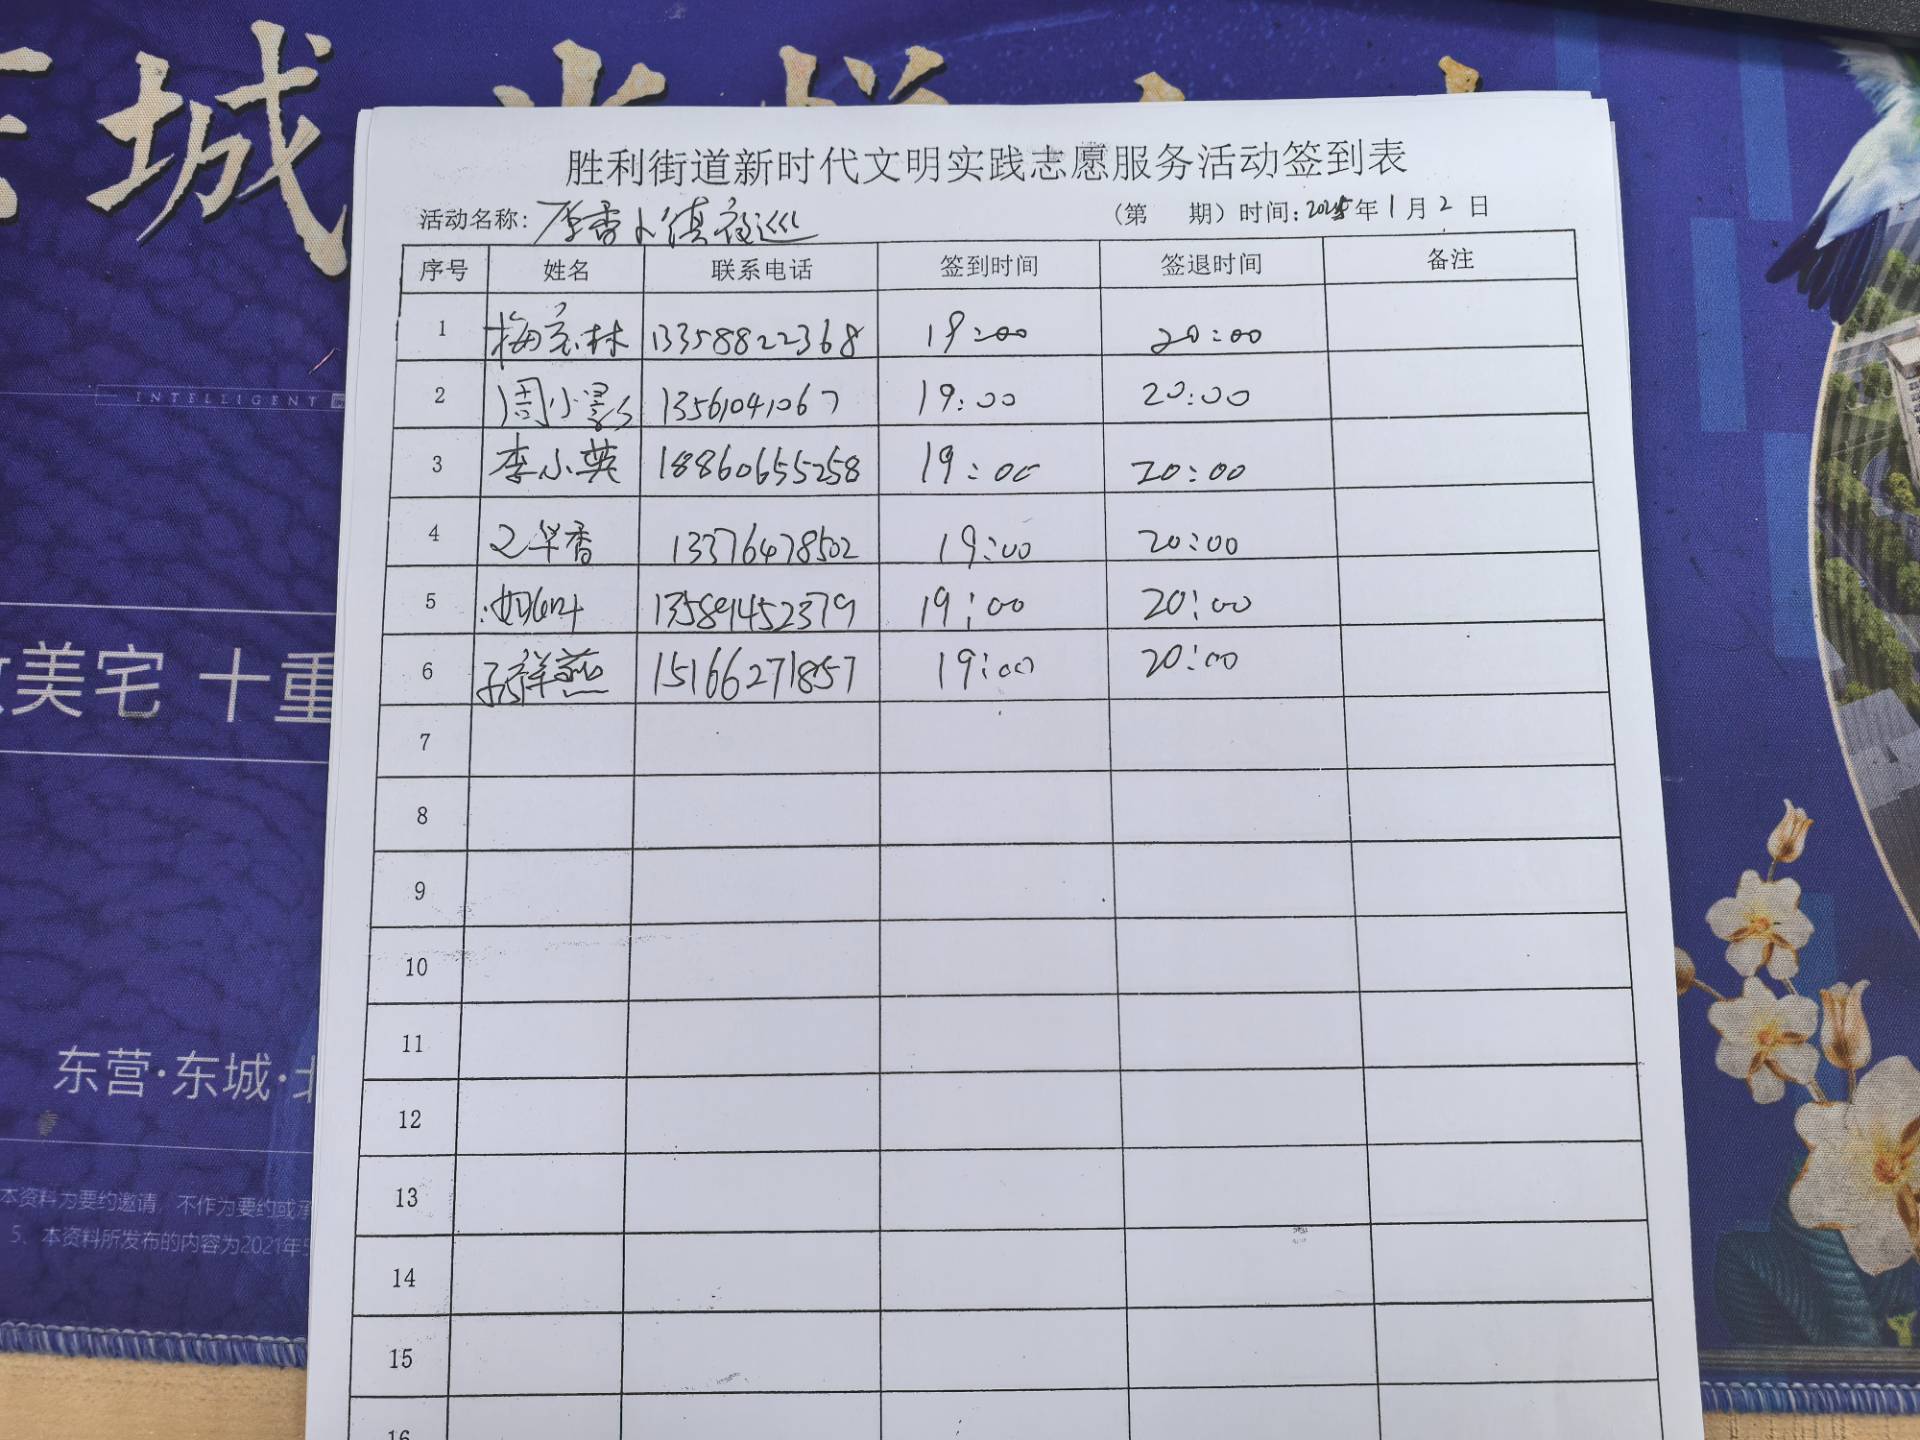 城
INTELLIGENT
美宅 十重
东营·东城·北
本资料为要约邀请，不作为要约或承
5、本资料所发布的内容为2021年5
胜利街道新时代文明实践志愿服务活动签到表
活动名称：香小镇夜巡 （第 期）时间：2025年1月2日
序号 姓名 联系电话 签到时间 签退时间 备注
1 梅林 13358822368 19:00 20:00
2 周小影 13561041067 19:00 20:00
3 李小英 18860655258 19:00 20:00
4 华香 13376478502 19:00 20:00
5 13589452379 19:00 20:00
6 祥燕 15166271857 19:00 20:00
7
8
9
10
11
12
13
14
15
16